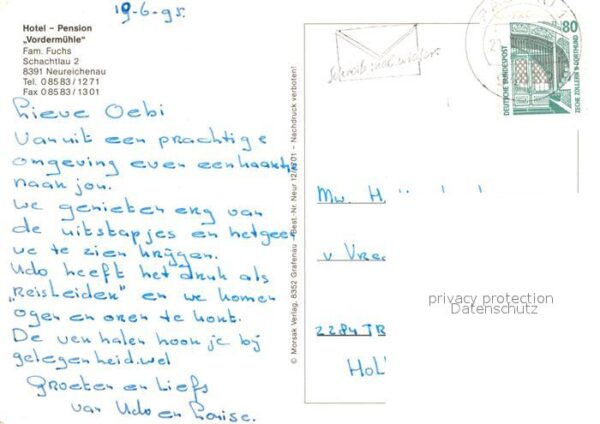 19-6-95.
Hotel – Pension
„Vordermühle"
Fam. Fuchs
Schachtlau 2
8391 Neureichenau
Tel. 0 85 83 / 12 71
Fax 0 85 83 / 13 01
Lieve Oebi
Vanuit een prachtige
omgeving even een kaartje
naar jou.
We genieten erg van
de uitstapjes en hetgeen
we te zien krijgen.
Udo heeft het druk als
„Reisleider" en we komen
ogen en oren te kort.
De verhalen hoor je bij
gelegenheid wel
Groeten en Liefs
van Udo en Louise.
© Morsak Verlag, 8352 Grafenau – Best.-Nr. Neur 12/1201 – Nachdruck verboten!
Schreib mal wieder
80
DEUTSCHE BUNDESPOST
ZECHE ZOLLERN II · DORTMUND
Mw. H
v Vree
2284 TR
HoL
privacy protection
Datenschutz